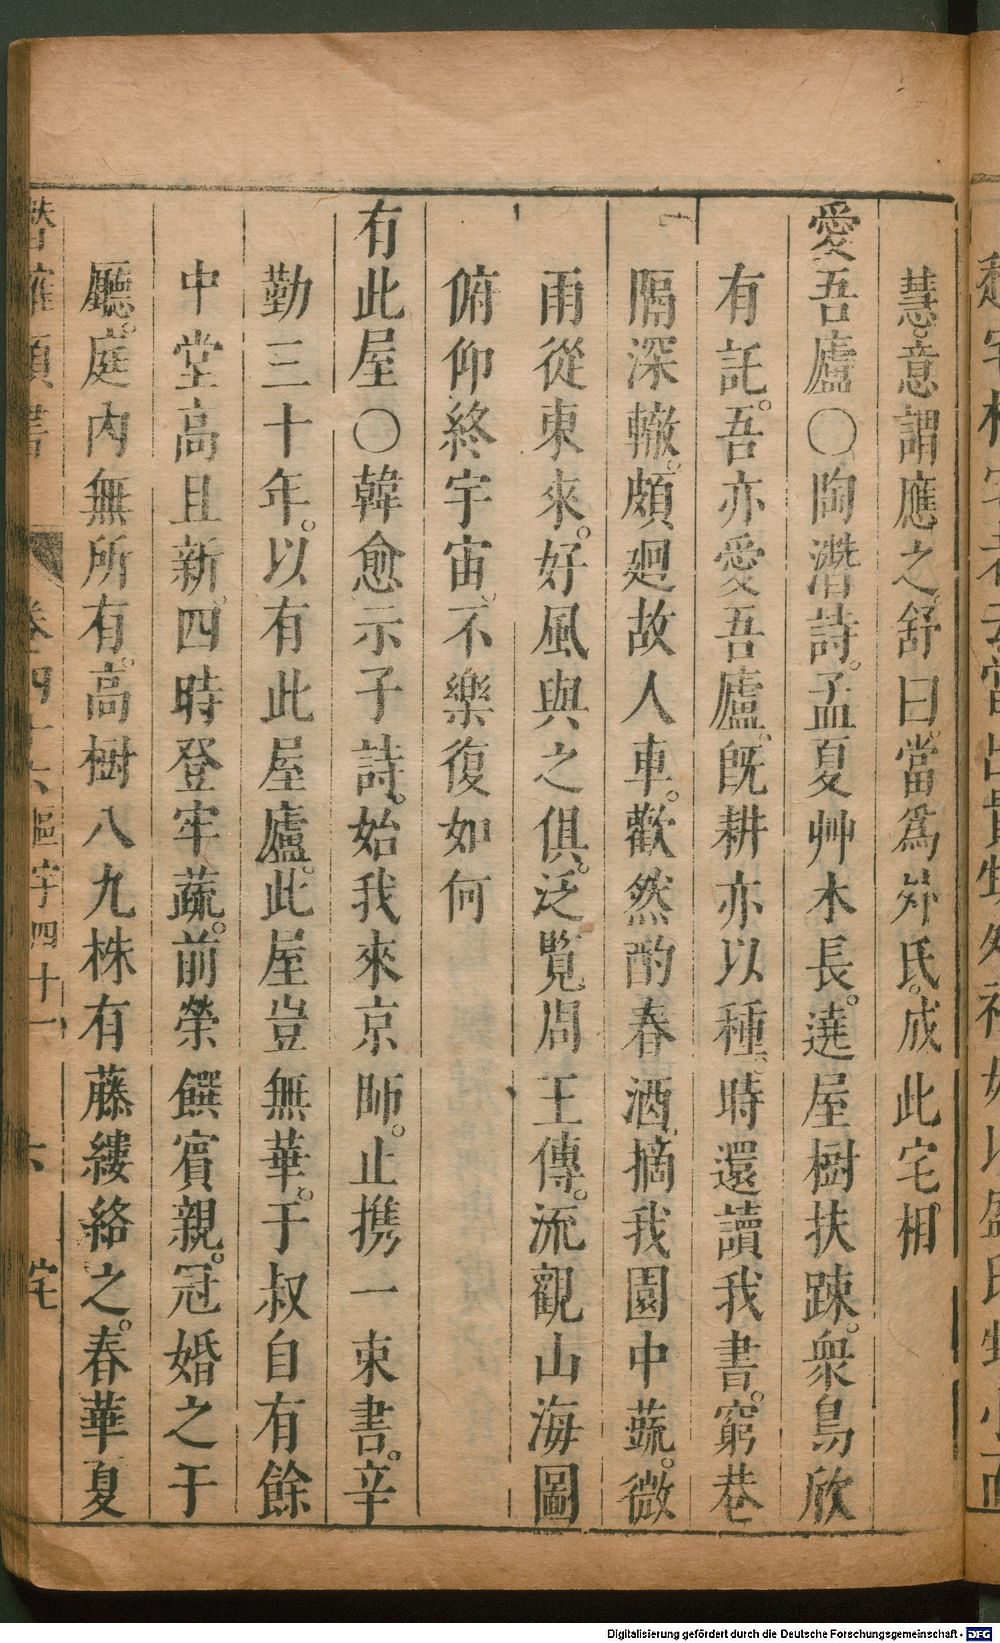 慧。意謂應之。舒曰。當爲外氏。成此宅相
愛吾廬○陶潛詩。孟夏艸木長。遶屋樹扶踈。衆鳥欣
有託。吾亦愛吾廬。旣耕亦以種。時還讀我書。窮巷
隔深轍。頗廻故人車。歡然酌春酒。摘我園中蔬。微
雨從東來。好風與之俱。泛覧周王傳。流觀山海圖
俯仰終宇宙。不樂復如何
有此屋○韓愈示子詩。始我來京師。止携一束書。辛
勤三十年。以有此屋廬。此屋豈無華。于叔自有餘
中堂高且新。四時登牢蔬。前榮饌賓親。冠婚之于
廳。庭內無所有。高樹八九株有藤縷絡之。春華夏
潛確類書 卷四十六 區宇四十一 六 宅
Digitalisierung gefördert durch die Deutsche Forschungsgemeinschaft - DFG